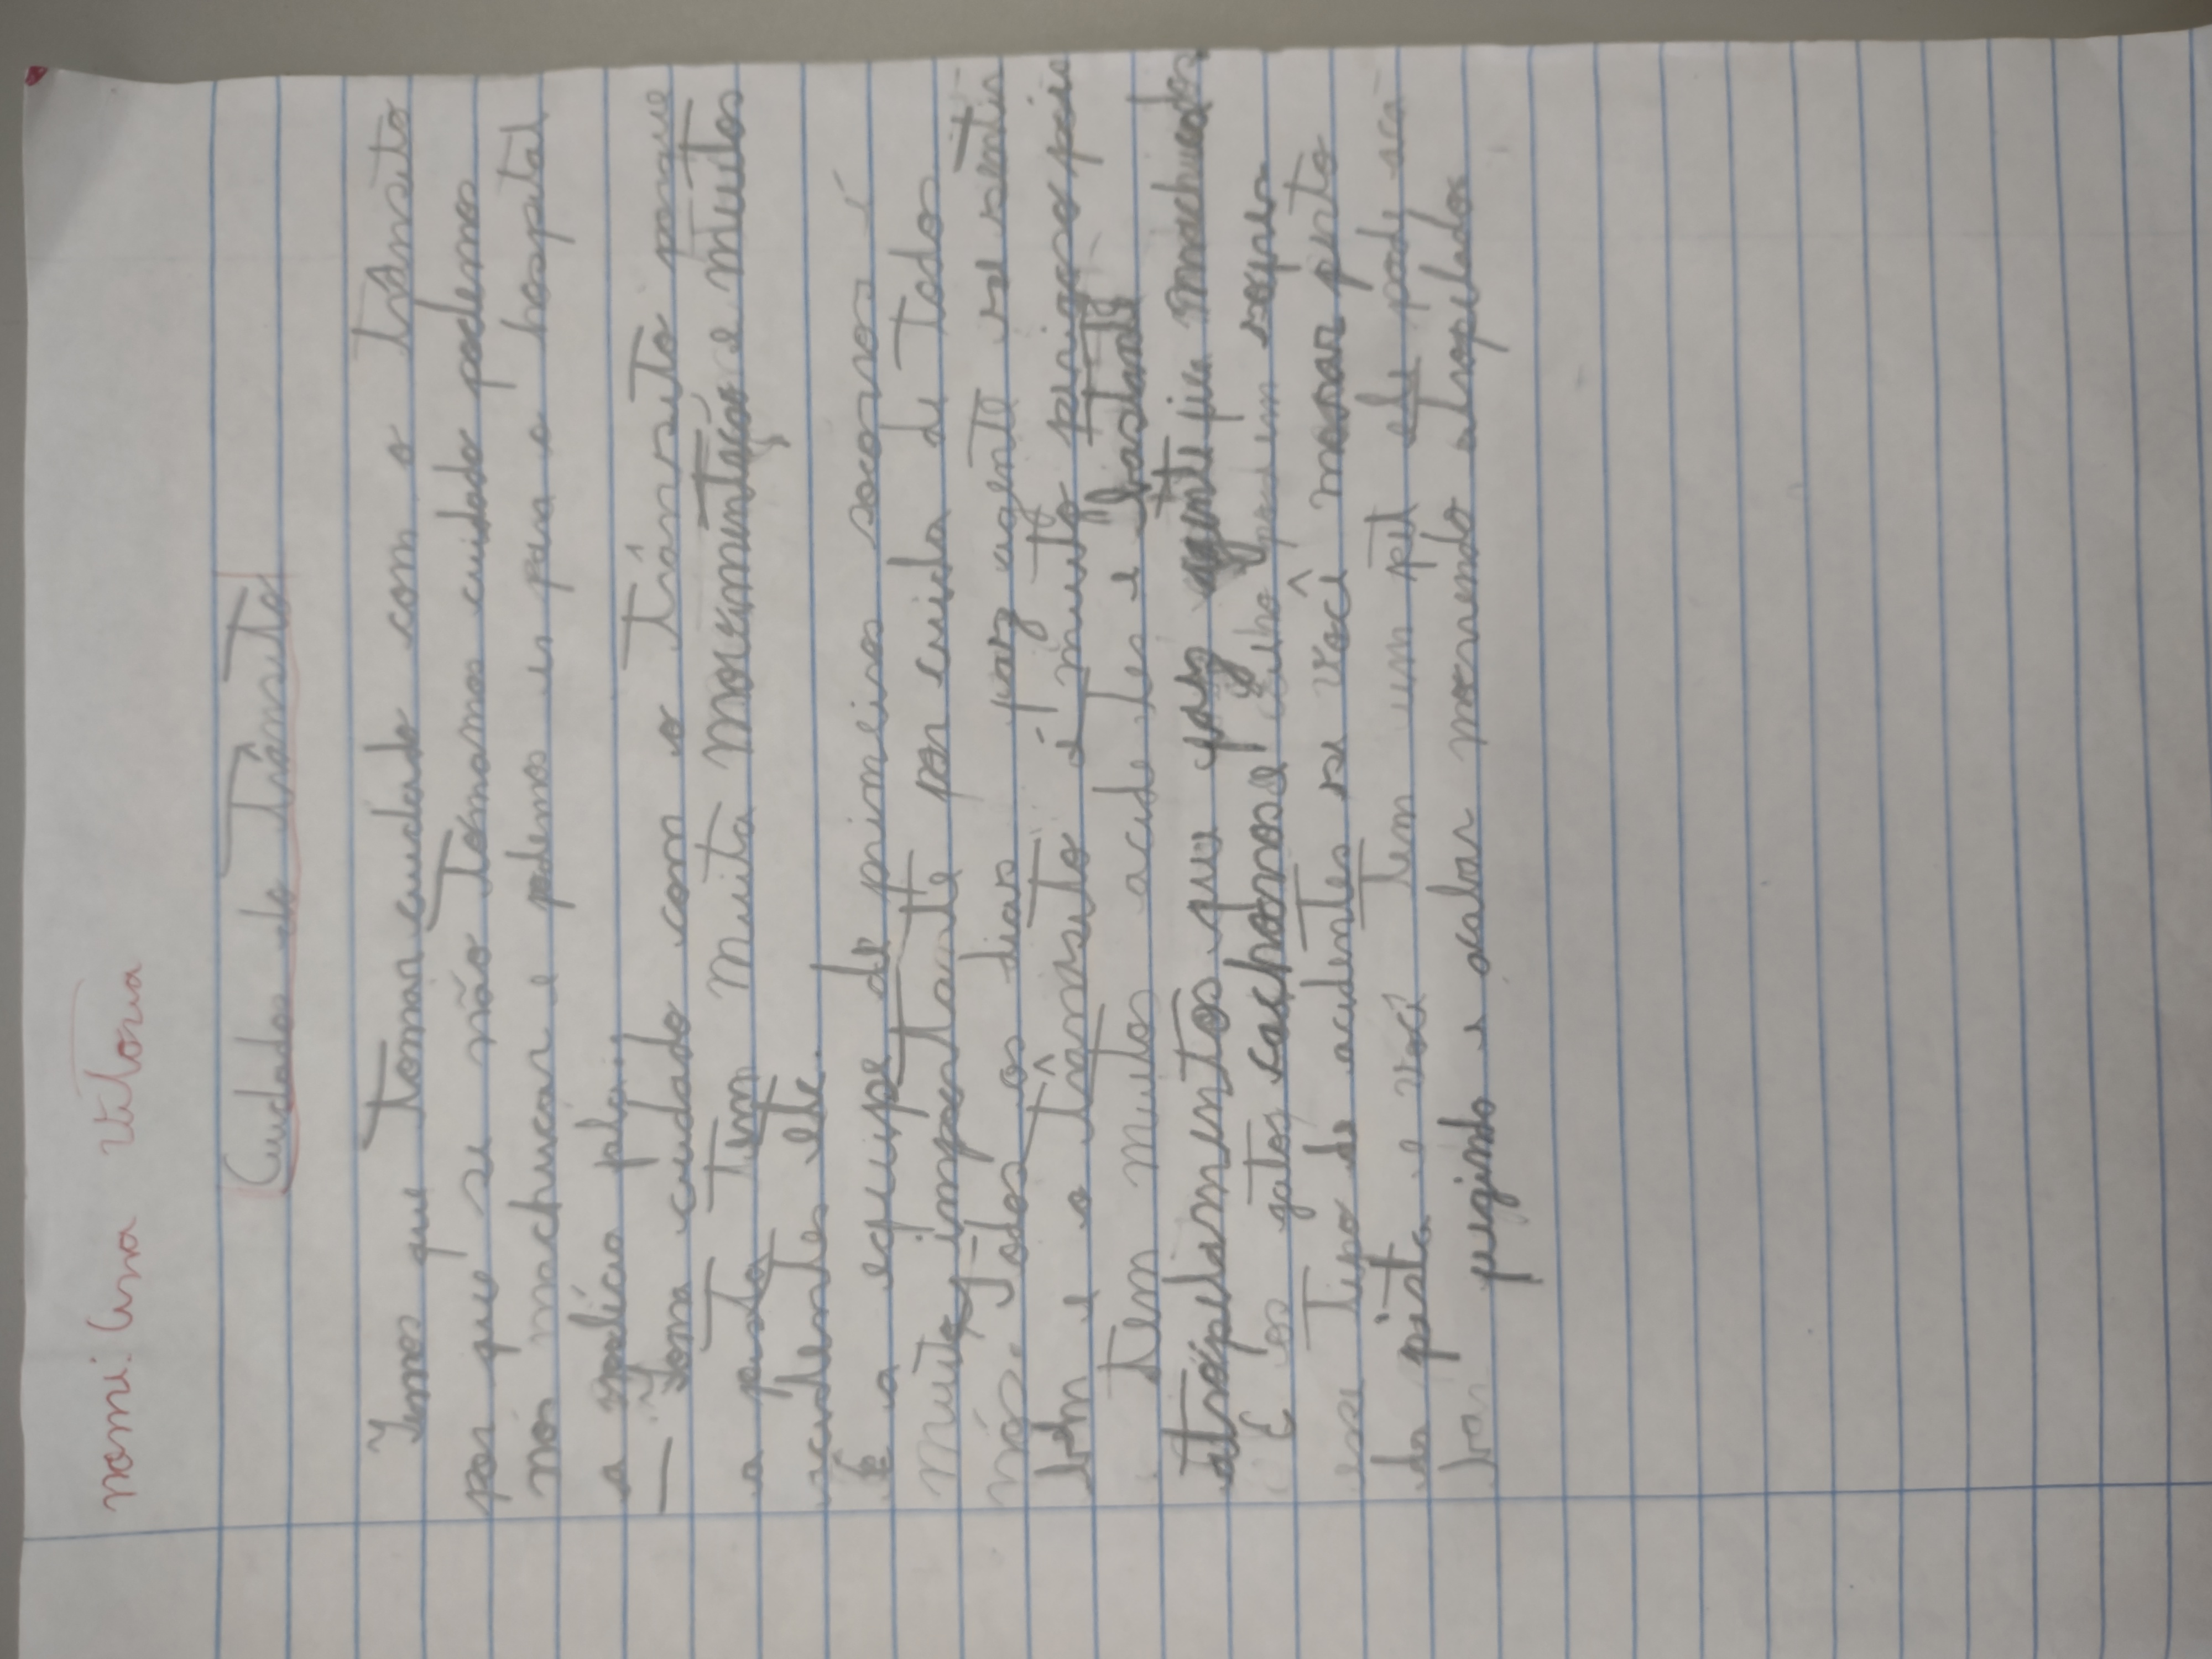 nome: Ana Vitoria
Cuidados do Trânsito
Temos que Tomar cuidado com o Trânsito
por que se não Tomamos cuidado podemos
nos machucar e podemos ir para o hospital
a
Toma cuidado com o Trânsito porque
a pista Tem muita movimentação e muitos
acidentes ele.
E a equipe de primeiros socorros é
muito importante por cuida de Todos
nós. Todos os dias faz agente se sentir
bem e o Trânsito é muito perigoso pois
Tem muitos acidentes e bastante
atropelamentos que faz agente fica machucados
E os gatos cachorros e podem sofrer
esse Tipo de acidentes se você morar perto
da pista e você Tem um pet ele pode aca-
bar fugindo e acabar morrendo atropelados